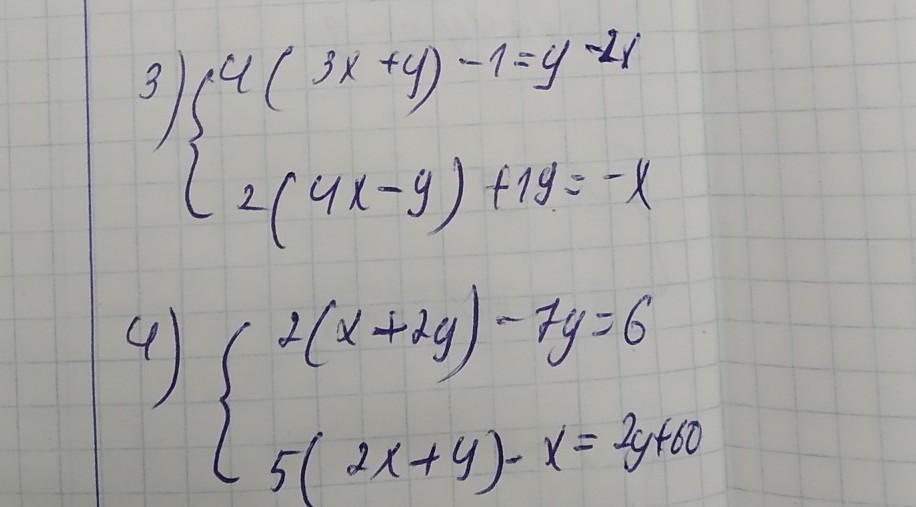 3) { 4(3x+y)-1=y-2x
2(4x-y)+1y=-x
4) { 2(x+2y)-7y=6
5(2x+y)-x=2y+60